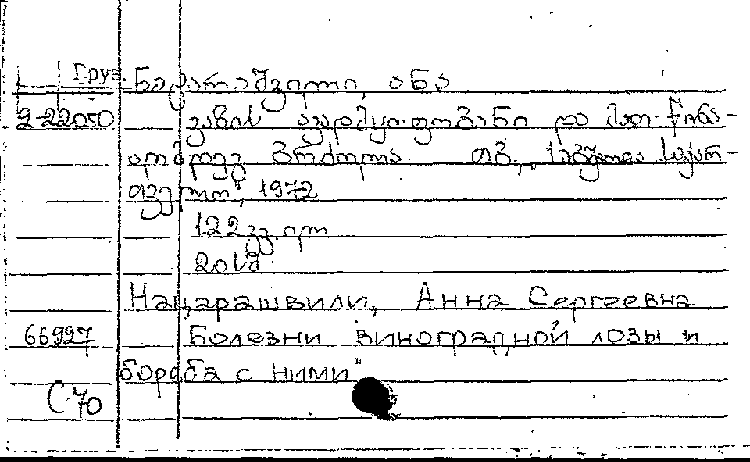 Груз. ნაცარაშვილი, ანა
2-22050 ვაზის ავადმყოფობანი და მათ წინა-
აღმდეგ ბრძოლა თბ., "საბჭოთა საქარ-
თველო", 1972
122 გვ. ილ
20სმ
Нацарашвили, Анна Сергеевна
66927 Болезни виноградной лозы и
борьба с ними"
С-70